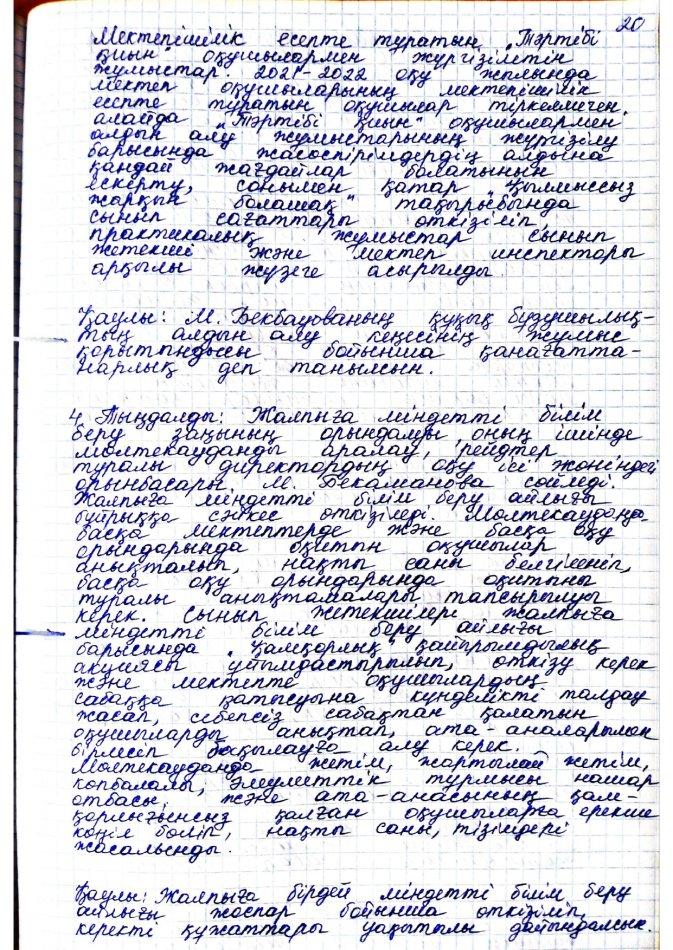 20
Мектепішілік есепте тұратын „Тәртібі
қиын" оқушылармен жүргізілетін
жұмыстар. 2021-2022 оқу жылында
мектеп оқушыларының мектепішілік
есепте тұратын оқушылар тіркелмеген,
алайда „Тәртібі қиын" оқушылармен
алдын алу жұмыстарының жүргізілу
барысында жасөспірімдердің алдына
қандай жағдайлар болатынын
ескерту, сонымен қатар „Қылмыссыз
жарқын болашақ" тақырыбында
сынып сағаттары өткізіліп
практикалық жұмыстар сынып
жетекші және мектеп инспекторы
арқылы жүзеге асырылды.
Қаулы: М. Бекбауованың құқық бұзушылық-
тың алдын алу кеңесінің жұмыс
қорытындысы бойынша қанағатта-
нарлық деп танылсын.
4. Тыңдалды: Жалпыға міндетті білім
беру заңының орындалуы, оның ішінде
молтекауданды аралау, рейдтер
туралы директордың оқу ісі жөніндегі
орынбасары М. Бекаманова сөйледі.
Жалпыға міндетті білім беру айлығы
бұйрыққа сәйкес өткізіледі. Молтекауданда
басқа мектептерде және басқа оқу
орындарында оқитын оқушылар
анықталып, нақты саны белгіленіп,
басқа оқу орындарында оқитыны
туралы анықтамалары тапсырылуы
керек. Сынып жетекшілері жалпыға
міндетті білім беру айлығы
барысында „Қамқорлық" қайырымдылық
акциясы ұйымдастырылып, өткізу керек
және мектепте оқушылардың
сабаққа қатысуына күнделікті талдау
жасап, себепсіз сабақтан қалатын
оқушыларды анықтап, ата-аналармен
бірлесіп бақылауға алу керек.
Молтекауданда жетім, жартылай жетім,
көпбалалы, әлеуметтік тұрмысы нашар
отбасы, және ата-анасының қам-
қорлығынсыз қалған оқушыларға ерекше
көңіл бөліп, нақты саны, тізімдері
жасалынды.
Қаулы: Жалпыға бірдей міндетті білім беру
айлығы жоспар бойынша өткізіліп,
керекті құжаттары уақытылы дайындалсын.